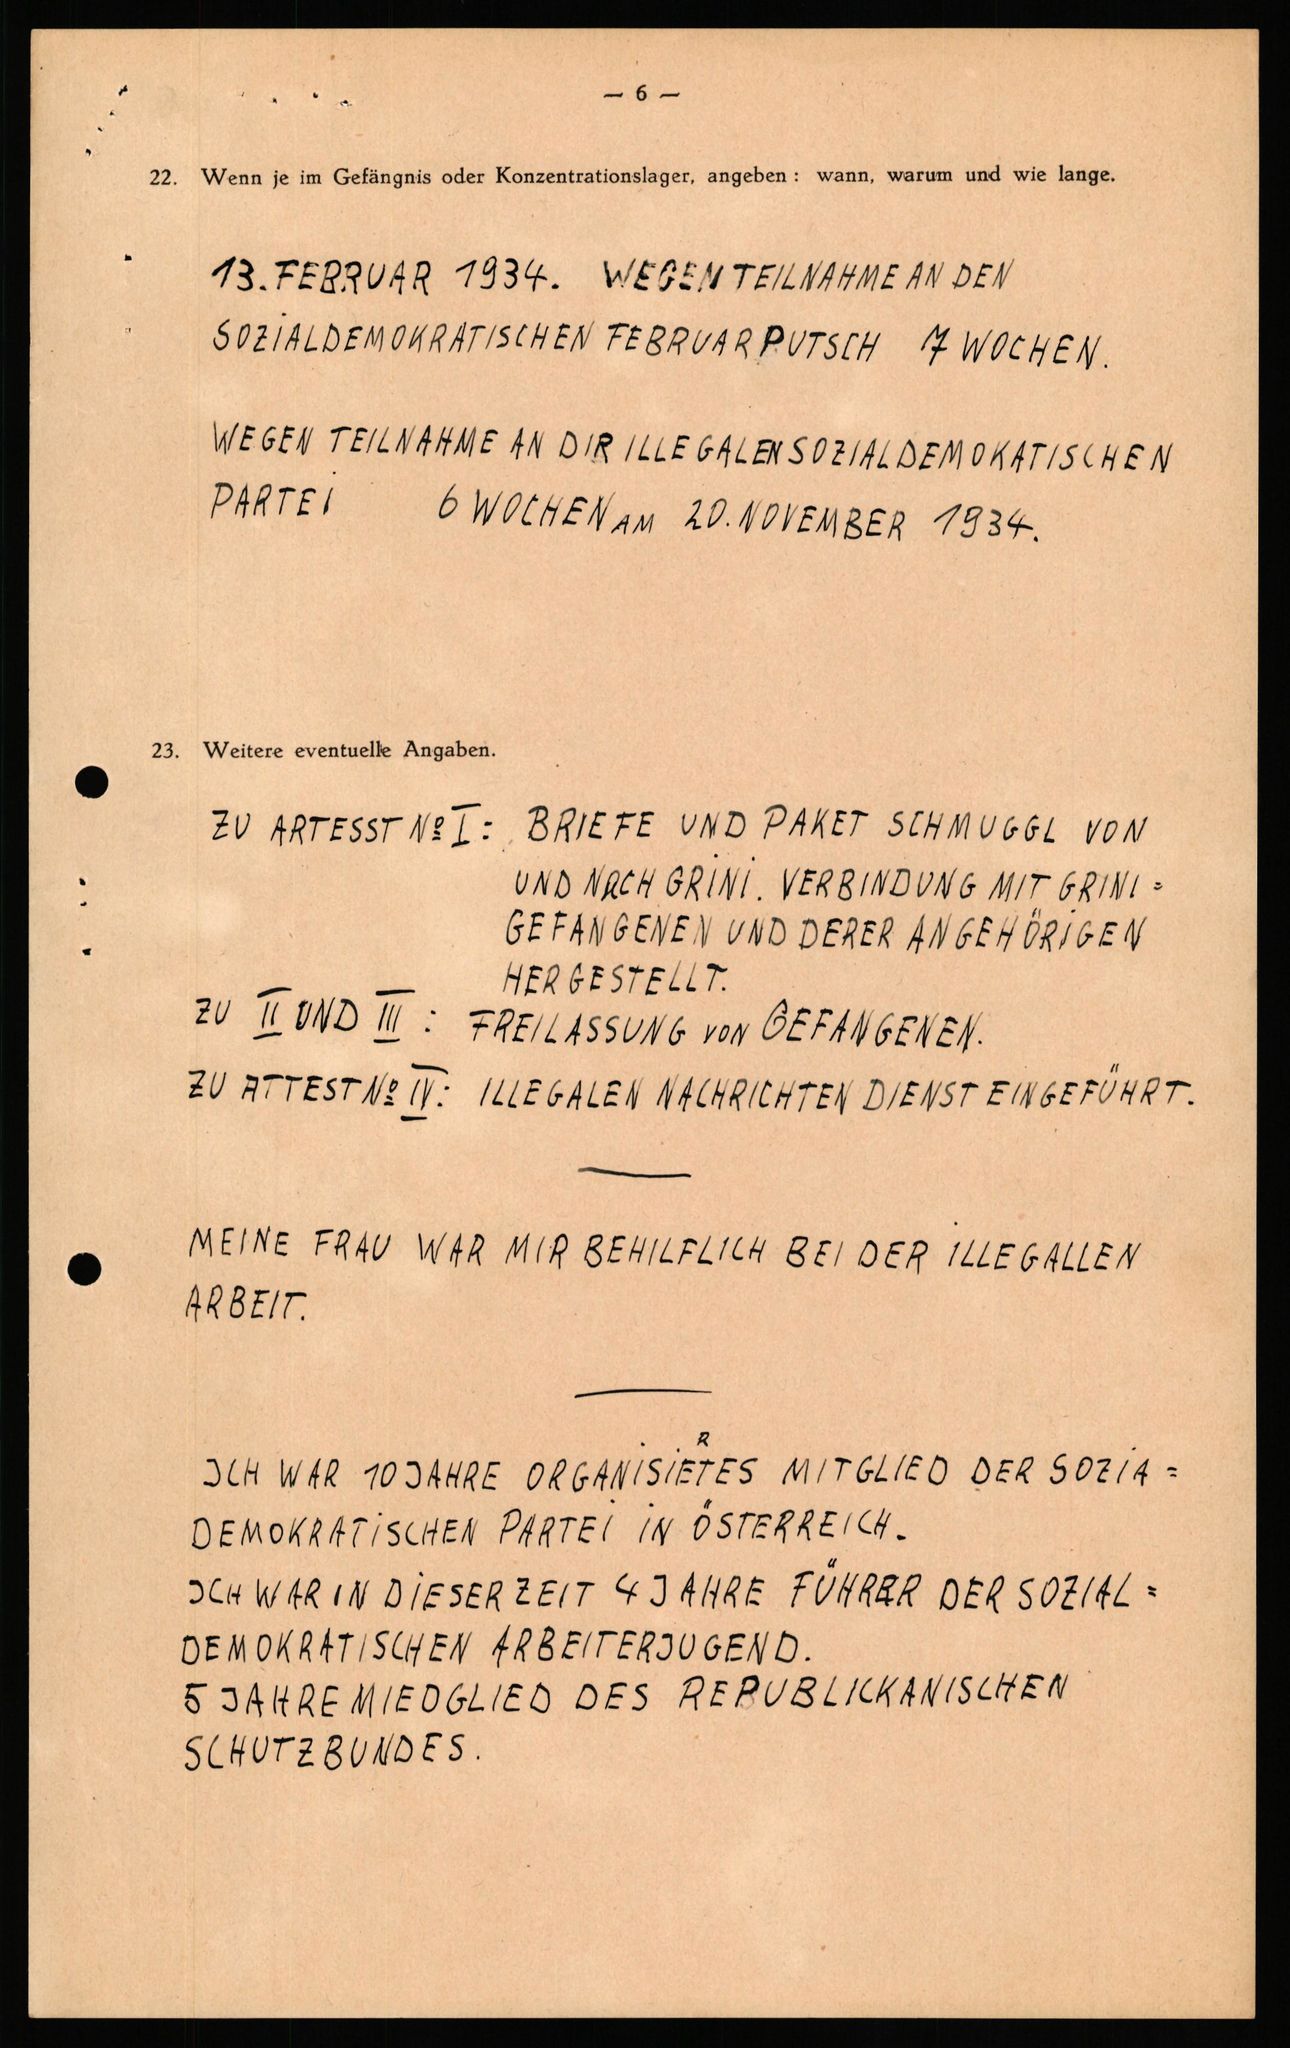 — 6 —
22. Wenn je im Gefängnis oder Konzentrationslager, angeben: wann, warum und wie lange.
13. FEBRUAR 1934. WEGEN TEILNAHME AN DEN
SOZIALDEMOKRATISCHEN FEBRUARPUTSCH 7 WOCHEN.
WEGEN TEILNAHME AN DIR ILLEGALEN SOZIALDEMOKATISCHEN
PARTEI 6 WOCHEN AM 20. NOVEMBER 1934.
23. Weitere eventuelle Angaben.
ZU ARTESST Nº I: BRIEFE UND PAKET SCHMUGGL VON
UND NACH GRINI. VERBINDUNG MIT GRINI=
GEFANGENEN UND DERER ANGEHÖRIGEN
HERGESTELLT.
ZU II UND III: FREILASSUNG VON GEFANGENEN.
ZU ATTEST Nº IV: ILLEGALEN NACHRICHTEN DIENST EINGEFÜHRT.
MEINE FRAU WAR MIR BEHILFLICH BEI DER ILLEGALLEN
ARBEIT.
ICH WAR 10 JAHRE ORGANISIERTES MITGLIED DER SOZIA=
DEMOKRATISCHEN PARTEI IN ÖSTERREICH.
ICH WAR IN DIESER ZEIT 4 JAHRE FÜHRER DER SOZIAL=
DEMOKRATISCHEN ARBEITERJUGEND.
5 JAHRE MIEDGLIED DES REPUBLICKANISCHEN
SCHUTZBUNDES.